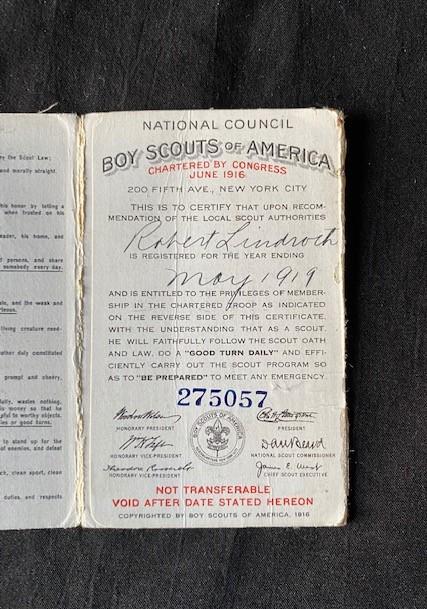 ey the Scout Law;
and morally straight.
his honor by telling a
when trusted on his
eader, his home, and
d persons, and share
somebody every day.
ale, and the weak and
living creature need-
other duly constituted
prompt and cheery.
fully, wastes nothing,
money so that he
pful to worthy objects.
ies or good turns.
to stand up for the
of enemies, and defeat
ch, clean sport, clean
duties, and respects
NATIONAL COUNCIL
BOY SCOUTS OF AMERICA
CHARTERED BY CONGRESS
JUNE 1916
200 FIFTH AVE., NEW YORK CITY
THIS IS TO CERTIFY THAT UPON RECOM-
MENDATION OF THE LOCAL SCOUT AUTHORITIES
Robert Lindroth
IS REGISTERED FOR THE YEAR ENDING
May 1919
AND IS ENTITLED TO THE PRIVILEGES OF MEMBER-
SHIP IN THE CHARTERED TROOP AS INDICATED
ON THE REVERSE SIDE OF THIS CERTIFICATE,
WITH THE UNDERSTANDING THAT AS A SCOUT,
HE WILL FAITHFULLY FOLLOW THE SCOUT OATH
AND LAW, DO A "GOOD TURN DAILY" AND EFFI-
CIENTLY CARRY OUT THE SCOUT PROGRAM SO
AS TO "BE PREPARED" TO MEET ANY EMERGENCY.
275057
Woodrow Wilson
HONORARY PRESIDENT
PRESIDENT
BOY SCOUTS OF AMERICA
Wm H Taft
HONORARY VICE-PRESIDENT
Dan Beard
NATIONAL SCOUT COMMISSIONER
Theodore Roosevelt
HONORARY VICE-PRESIDENT
James E. West
CHIEF SCOUT EXECUTIVE
NOT TRANSFERABLE
VOID AFTER DATE STATED HEREON
COPYRIGHTED BY BOY SCOUTS OF AMERICA, 1916